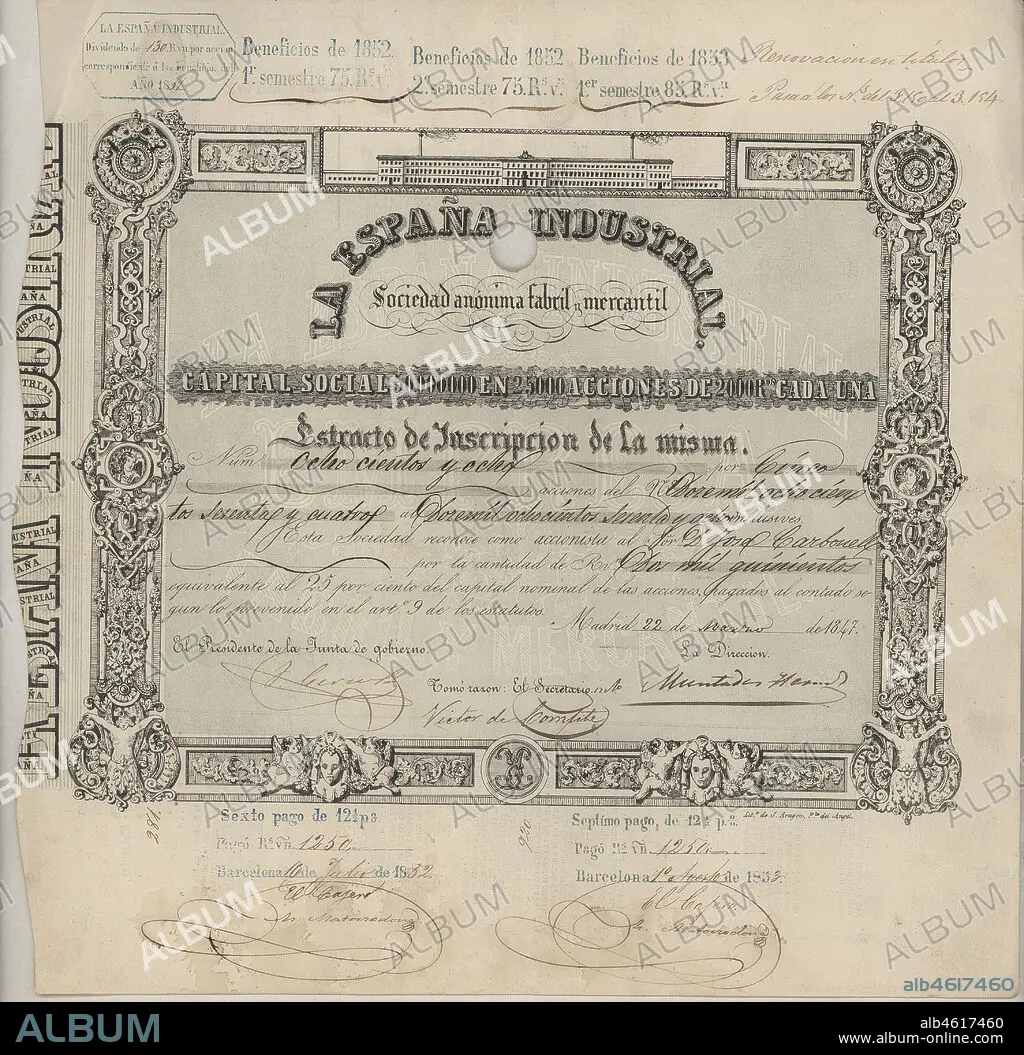 LA ESPAÑA INDUSTRIAL.
Dividendo de 130 R.vn. por accion
correspondiente á los beneficios del
AÑO 1851
Beneficios de 1852.
1er semestre 75. Rs. vn.
Beneficios de 1852
2º semestre 75. Rs. vn.
Beneficios de 1853
1er semestre 85. Rs. vn
Renovacion en titulos
Para los Ns. del 3.180 al 3.184
LA ESPAÑA INDUSTRIAL.
Sociedad anónima fabril y mercantil
CAPITAL SOCIAL EN 25000 ACCIONES DE 2000 Rs CADA UNA
Estracto de Inscripcion de la misma.
Num. Ocho cientos y ocho por Cinco
acciones del Nº Dos mil ocho cien
tos sesenta y cuatro al Dos mil ochocientos sesenta y ocho inclusives.
Esta Sociedad reconoce como accionista al Sor. D. José Carbonell
por la cantidad de Rvn Dos mil quinientos
equivalente al 25 por ciento del capital nominal de las acciones, pagados al contado se-
gun lo prevenido en el artº 9 de los estatutos.
Madrid 22 de Marzo de 1847.
El Presidente de la Junta de gobierno.
La Direccion.
Tomó razon: El Secretario int.º
Muntadas Herms
Victor de
Sexto pago de 12½ p8
Pagó Rs. vn. 1250
Barcelona 10 de Julio de 1852.
El Cajero
782
Septimo pago, de 12½ p.8.
Pagó Rs vn. 1250.
Barcelona 1º Agosto de 1853.
El Cajero
920
Lit.ª de J. Aragon, Pta del Angel.
LA ESPAÑA INDUSTRIAL
ALBUM
alb4617460
ALBUM
alb4617460
www.album-online.com